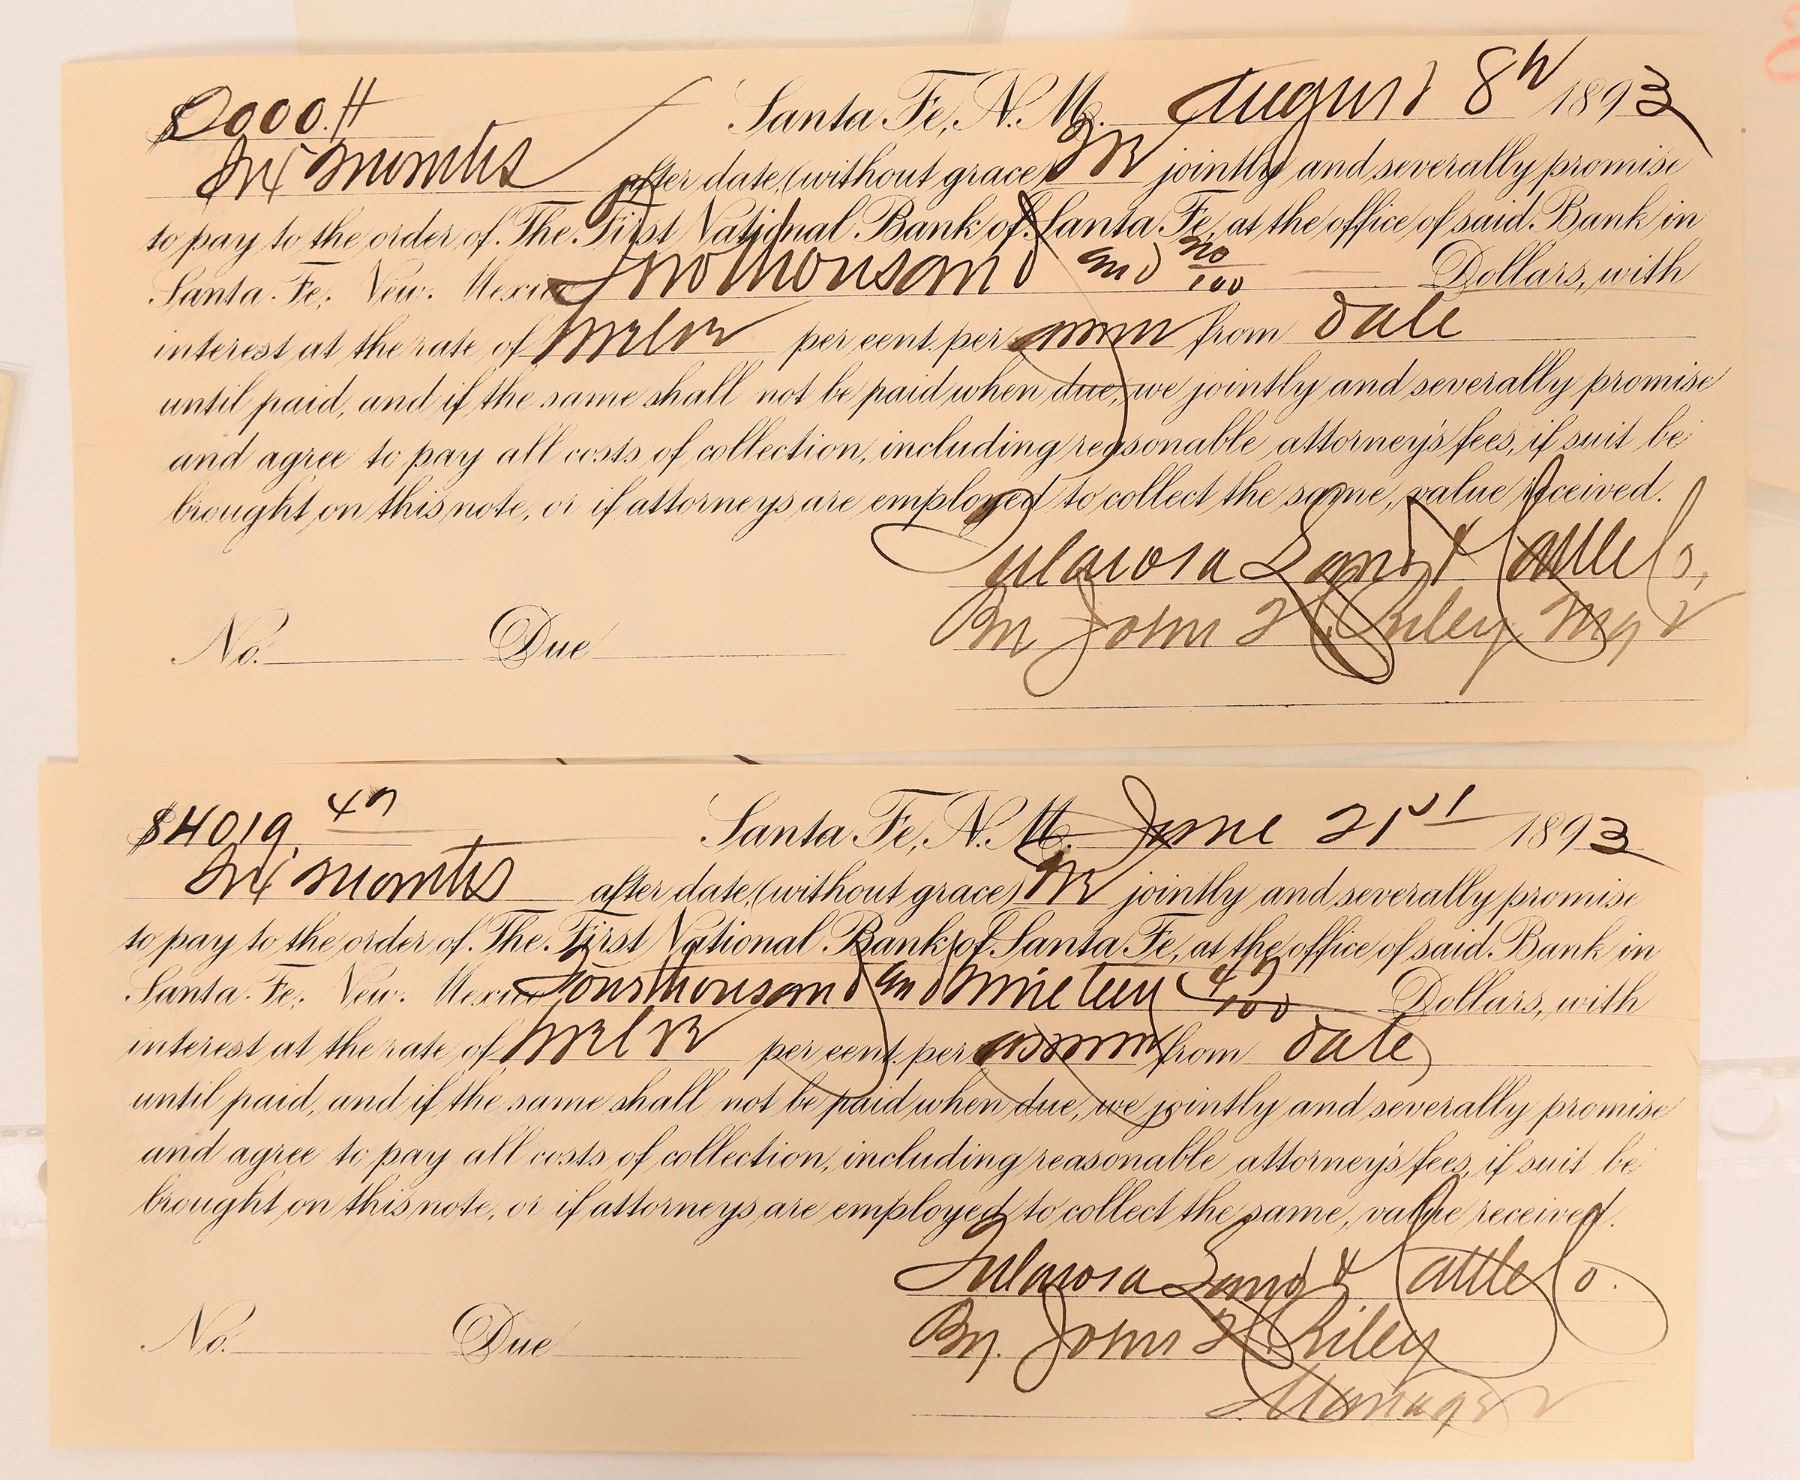 $2000.
Santa Fe, N. M. August 8th 1893
Six months after date, (without grace) We jointly and severally promise
to pay to the order of The First National Bank of Santa Fe, at the office of said Bank in
Santa Fe, New Mexico Two thousand and no/100 Dollars, with
interest at the rate of twelve per cent. per annum from date
until paid, and if the same shall not be paid when due, we jointly and severally promise
and agree to pay all costs of collection, including reasonable attorney's fees, if suit be
brought on this note, or if attorneys are employed to collect the same, value received.
Tularosa Land & Cattle Co.
By John H. Riley Mgr
No. Due
$4019.47
Santa Fe, N. M. June 21st 1893
Six months after date, (without grace) We jointly and severally promise
to pay to the order of The First National Bank of Santa Fe, at the office of said Bank in
Santa Fe, New Mexico Four thousand and nineteen 47/100 Dollars, with
interest at the rate of twelve per cent. per annum from date
until paid, and if the same shall not be paid when due, we jointly and severally promise
and agree to pay all costs of collection, including reasonable attorney's fees, if suit be
brought on this note, or if attorneys are employed to collect the same, value received.
Tularosa Land & Cattle Co.
By. John H Riley
No. Due
Manager